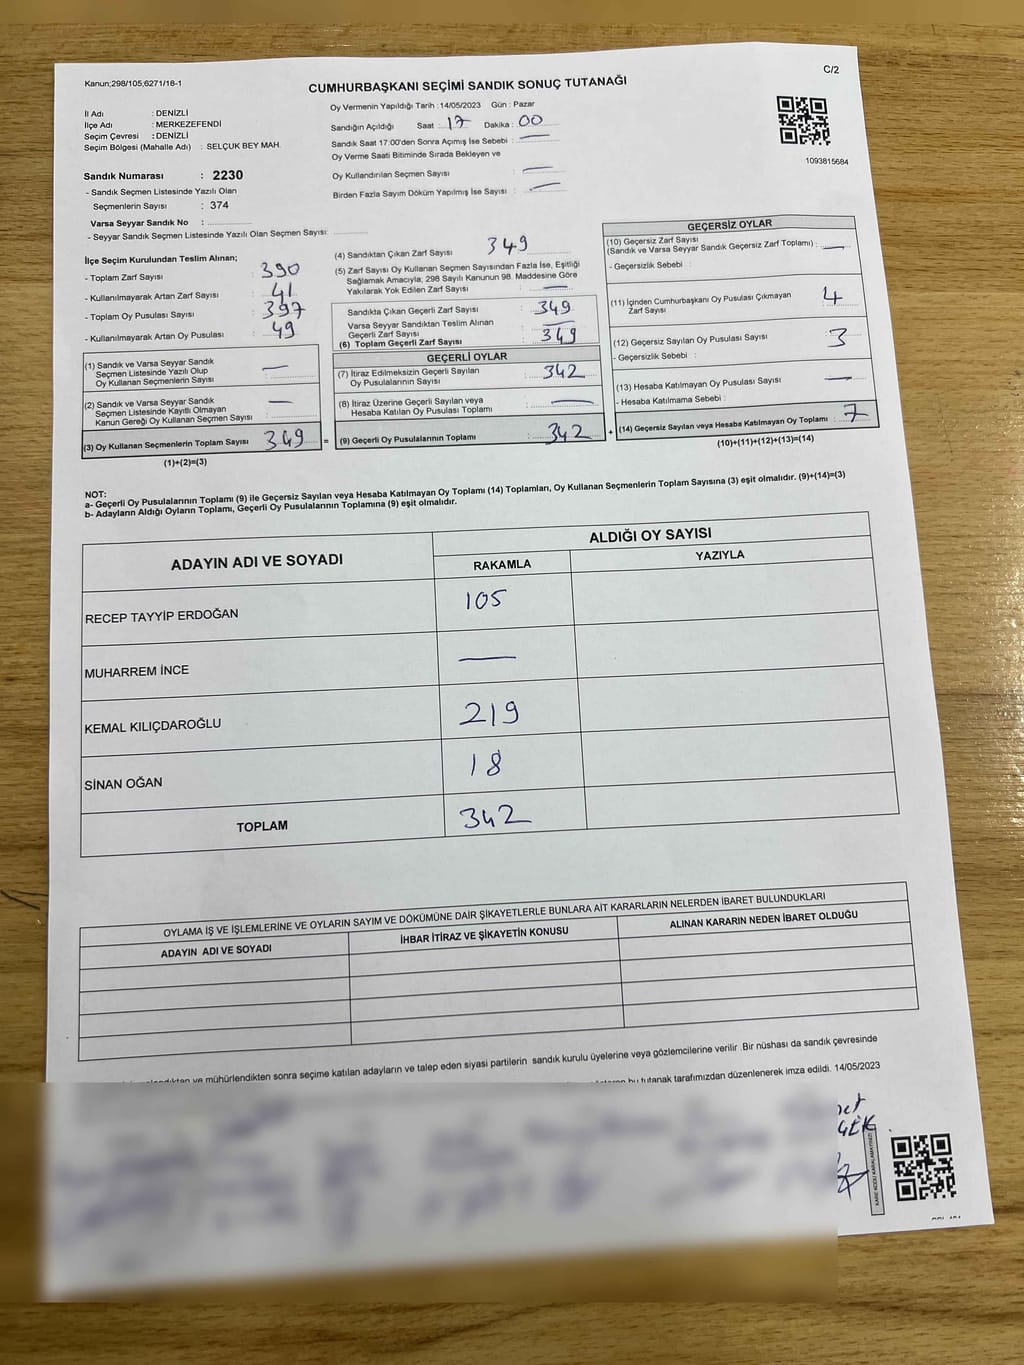 Kanun;298/105;6271/18-1
CUMHURBAŞKANI SEÇİMİ SANDIK SONUÇ TUTANAĞI
C/2
İl Adı : DENİZLİ
İlçe Adı : MERKEZEFENDİ
Seçim Çevresi : DENİZLİ
Seçim Bölgesi (Mahalle Adı) : SELÇUK BEY MAH.
Oy Vermenin Yapıldığı Tarih : 14/05/2023 Gün : Pazar
Sandığın Açıldığı Saat : 17 Dakika : 00
Sandık Saat 17:00'den Sonra Açımış İse Sebebi : —
Oy Verme Saati Bitiminde Sırada Bekleyen ve
Oy Kullandırılan Seçmen Sayısı : —
Birden Fazla Sayım Döküm Yapılmış İse Sayısı : —
1093815684
Sandık Numarası : 2230
- Sandık Seçmen Listesinde Yazılı Olan
Seçmenlerin Sayısı : 374
Varsa Seyyar Sandık No :
- Seyyar Sandık Seçmen Listesinde Yazılı Olan Seçmen Sayısı:
İlçe Seçim Kurulundan Teslim Alınan;
- Toplam Zarf Sayısı : 390
- Kullanılmayarak Artan Zarf Sayısı : 41
- Toplam Oy Pusulası Sayısı : 397
- Kullanılmayarak Artan Oy Pusulası : 49
(1) Sandık ve Varsa Seyyar Sandık
Seçmen Listesinde Yazılı Olup
Oy Kullanan Seçmenlerin Sayısı : —
(2) Sandık ve Varsa Seyyar Sandık
Seçmen Listesinde Kayıtlı Olmayan
Kanun Gereği Oy Kullanan Seçmen Sayısı : —
(3) Oy Kullanan Seçmenlerin Toplam Sayısı : 349 =
(1)+(2)=(3)
(4) Sandıktan Çıkan Zarf Sayısı : 349
(5) Zarf Sayısı Oy Kullanan Seçmen Sayısından Fazla İse, Eşitliği
Sağlamak Amacıyla, 298 Sayılı Kanunun 98. Maddesine Göre
Yakılarak Yok Edilen Zarf Sayısı : —
Sandıkta Çıkan Geçerli Zarf Sayısı : 349
Varsa Seyyar Sandıktan Teslim Alınan
Geçerli Zarf Sayısı : —
(6) Toplam Geçerli Zarf Sayısı : 349
GEÇERLİ OYLAR
(7) İtiraz Edilmeksizin Geçerli Sayılan
Oy Pusulalarının Sayısı : 342
(8) İtiraz Üzerine Geçerli Sayılan veya
Hesaba Katılan Oy Pusulası Toplamı : —
(9) Geçerli Oy Pusulalarının Toplamı : 342 +
GEÇERSİZ OYLAR
(10) Geçersiz Zarf Sayısı
(Sandık ve Varsa Seyyar Sandık Geçersiz Zarf Toplamı) : —
- Geçersizlik Sebebi :
(11) İçinden Cumhurbaşkanı Oy Pusulası Çıkmayan
Zarf Sayısı : 4
(12) Geçersiz Sayılan Oy Pusulası Sayısı : 3
- Geçersizlik Sebebi :
(13) Hesaba Katılmayan Oy Pusulası Sayısı : —
- Hesaba Katılmama Sebebi :
(14) Geçersiz Sayılan veya Hesaba Katılmayan Oy Toplamı : 7
(10)+(11)+(12)+(13)=(14)
NOT:
a- Geçerli Oy Pusulalarının Toplamı (9) ile Geçersiz Sayılan veya Hesaba Katılmayan Oy Toplamı (14) Toplamları, Oy Kullanan Seçmenlerin Toplam Sayısına (3) eşit olmalıdır. (9)+(14)=(3)
b- Adayların Aldığı Oyların Toplamı, Geçerli Oy Pusulalarının Toplamına (9) eşit olmalıdır.
ADAYIN ADI VE SOYADI
ALDIĞI OY SAYISI
RAKAMLA YAZIYLA
RECEP TAYYİP ERDOĞAN 105
MUHARREM İNCE —
KEMAL KILIÇDAROĞLU 219
SİNAN OĞAN 18
TOPLAM 342
OYLAMA İŞ VE İŞLEMLERİNE VE OYLARIN SAYIM VE DÖKÜMÜNE DAİR ŞİKAYETLERLE BUNLARA AİT KARARLARIN NELERDEN İBARET BULUNDUKLARI
ADAYIN ADI VE SOYADI
İHBAR İTİRAZ VE ŞİKAYETİN KONUSU
ALINAN KARARIN NEDEN İBARET OLDUĞU
ve mühürlendikten sonra seçime katılan adayların ve talep eden siyasi partilerin sandık kurulu üyelerine veya gözlemcilerine verilir .Bir nüshası da sandık çevresinde
bu tutanak tarafımızdan düzenlenerek imza edildi. 14/05/2023
KARE KODU KARALAMAYINIZ!